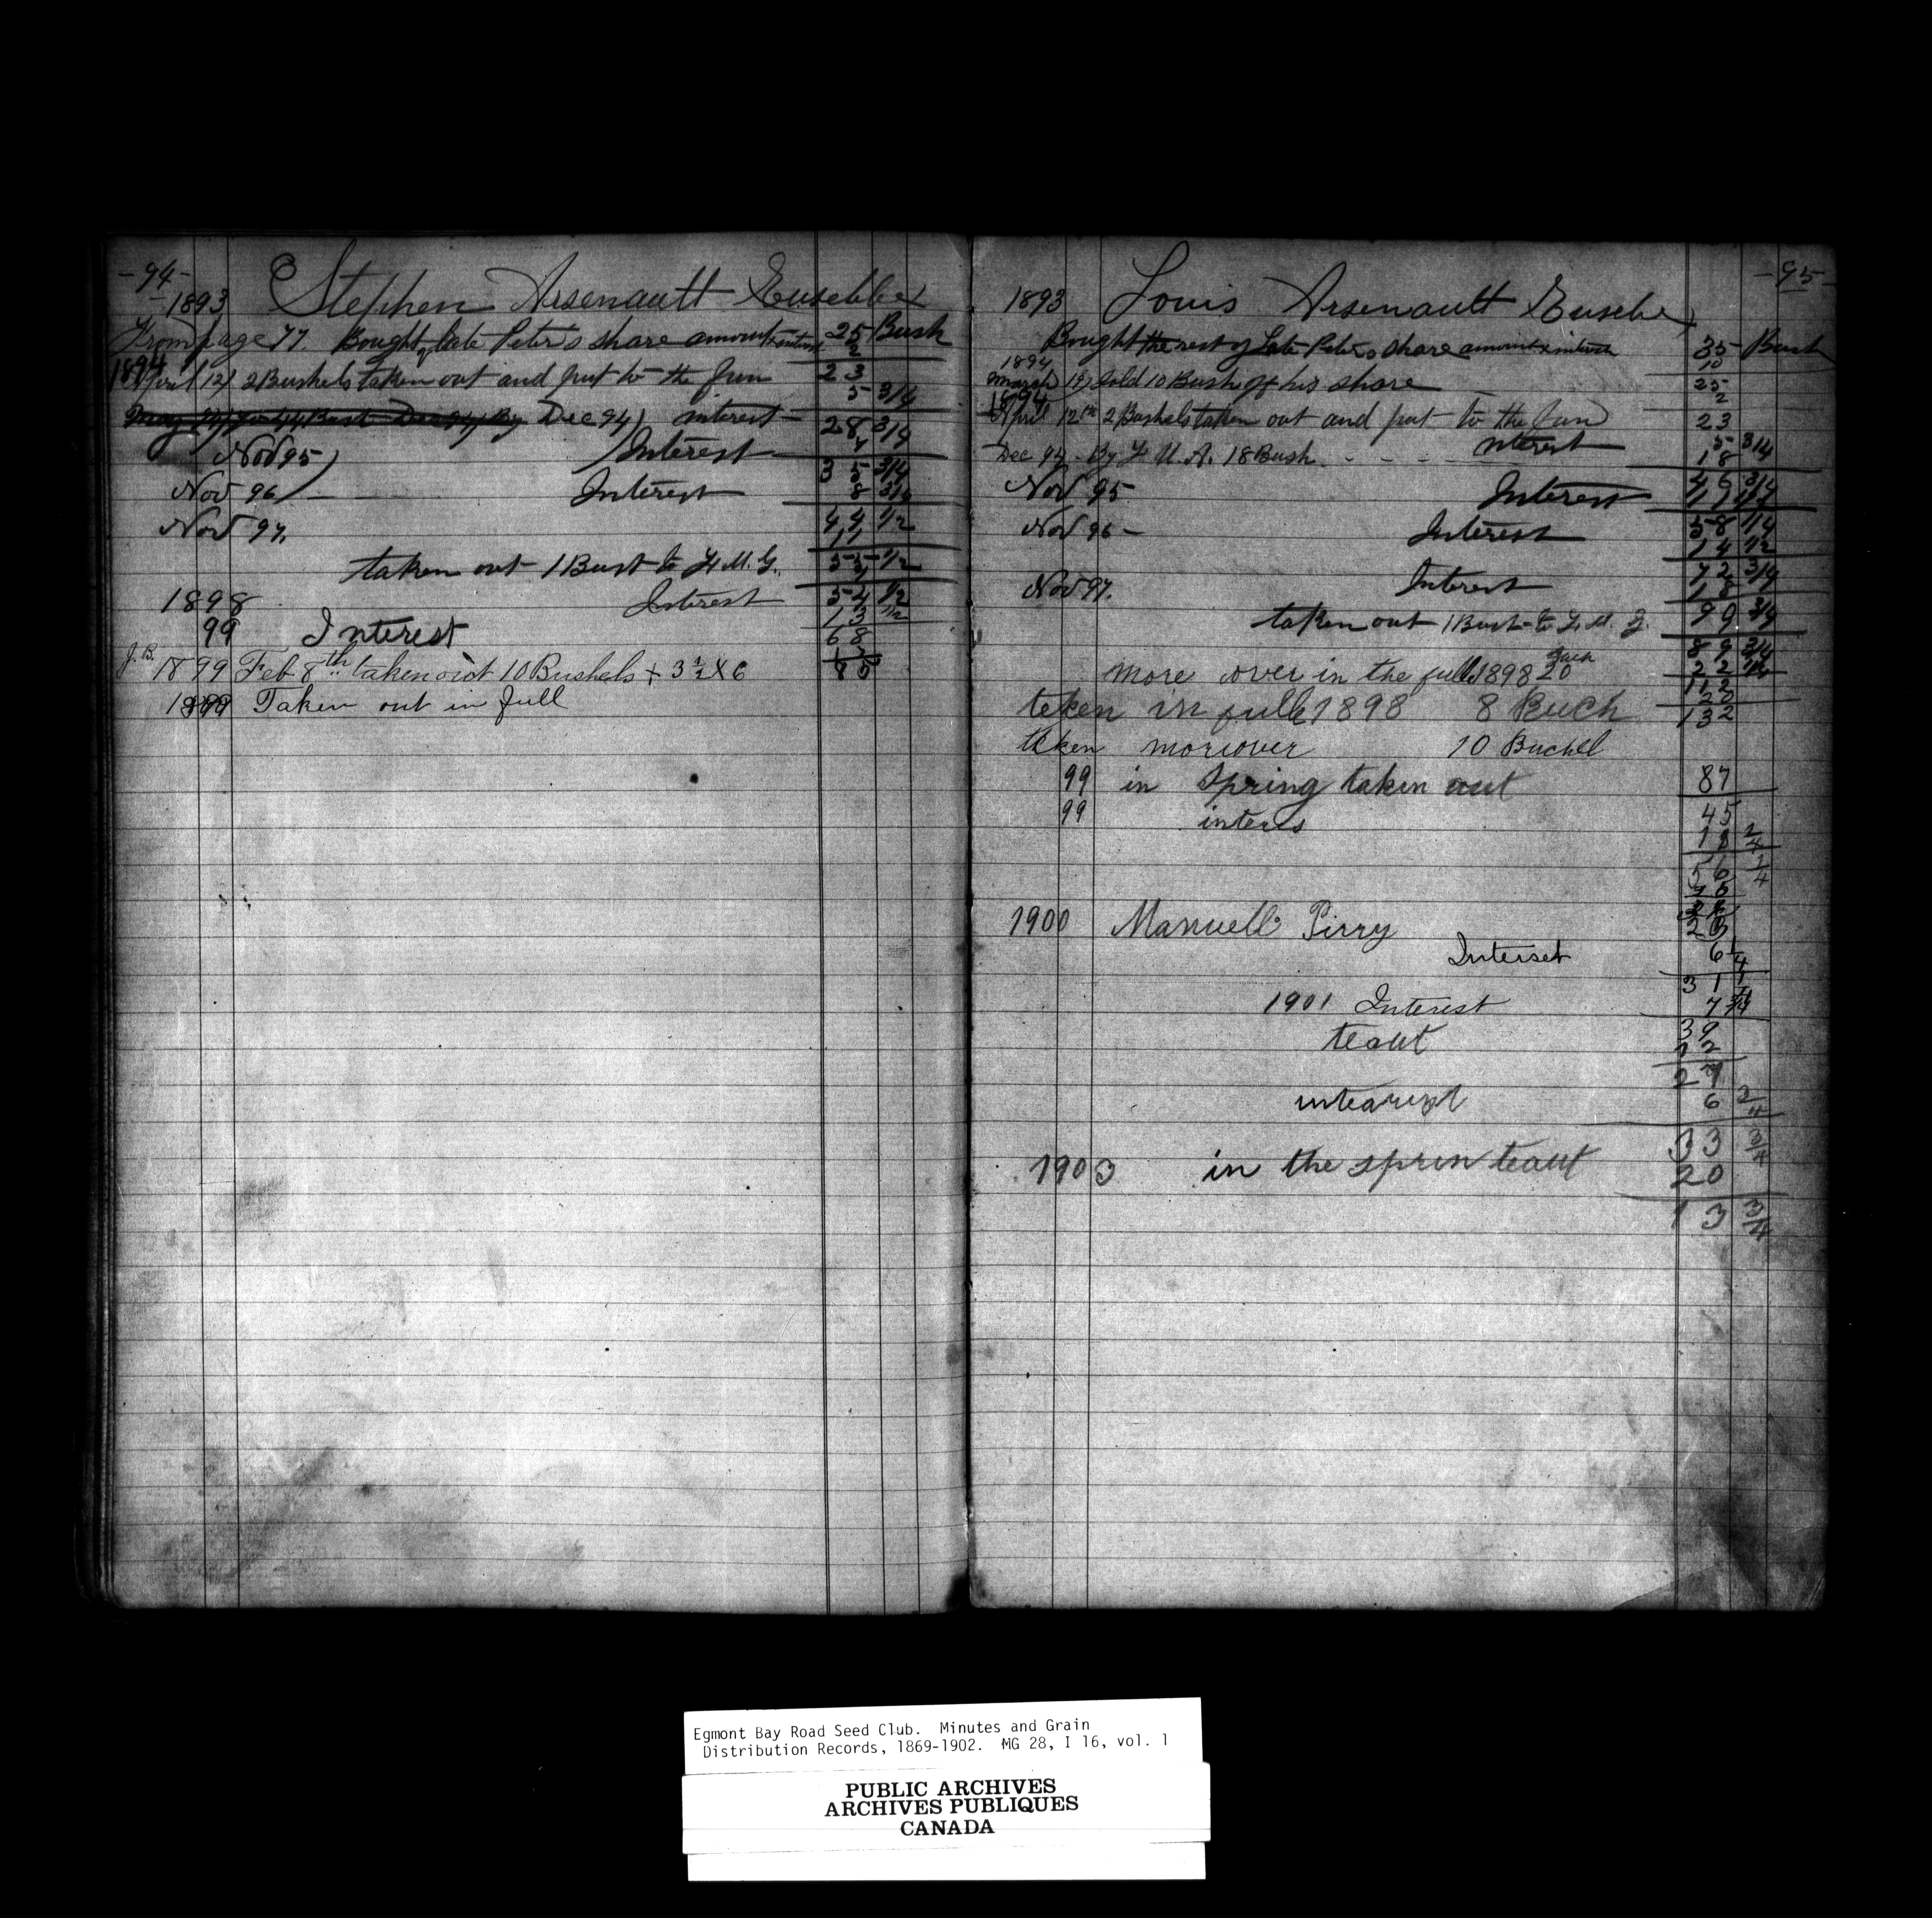 -94-
-1893 Stephen Arsenault Eusebbe
From page 77. Bought of late Peters share amount & interest 25 Bush
2
1894
April 12) 2 Bushels taken out and put to the fun 23
5 3/4
Dec 94) interest - 28 3/4
7
Nov 95) Interest 35 3/4
8 3/4
Nov 96 Interest 44 1/2
11
Nov 97.
taken out 1 Bust to F. M. G. 55 1/2
1
1898 Interest 54 1/2
13 1/2
99 Interest 68
J. B. 1899 Feb 8th taken out 10 Bushels + 3 1/2 X 6
1899 Taken out in full
-95-
1893 Louis Arsenault Eusebe
Bought the rest of Late Peters share amount & interest 35 Bush
10
1894
March 19) Sold 10 Bush of his share 25
2
1894
April 12th 2 Bushels taken out and put to the fun 23
Interest 5 3/4
Dec 94 - By F U. A. 18 Bush - - - - 18
Nov 95 Interest 46 3/4
11 1/2
Nov 96 - Interest 58 1/4
14 1/2
72 3/4
Nov 97. Interest 18
taken out 1 Bush to F. M. G. 90 3/4
89 3/4
22 1/4
more over in the full 1898 20 112
20
taken in full 1898 8 Buch 132
teken moreover 10 Buchel
99 in Spring taken out 87
99 inters 45
56 1/4
1900 Manuell Pirry
Interset 6 1/4
31 1/4
1901 Interest 7 3/4
teaut 39
12
27
intearest 6 3/4
33 3/4
1903 in the sprin teaut 20
13 3/4
Egmont Bay Road Seed Club. Minutes and Grain
Distribution Records, 1869-1902. MG 28, I 16, vol. 1
PUBLIC ARCHIVES
ARCHIVES PUBLIQUES
CANADA